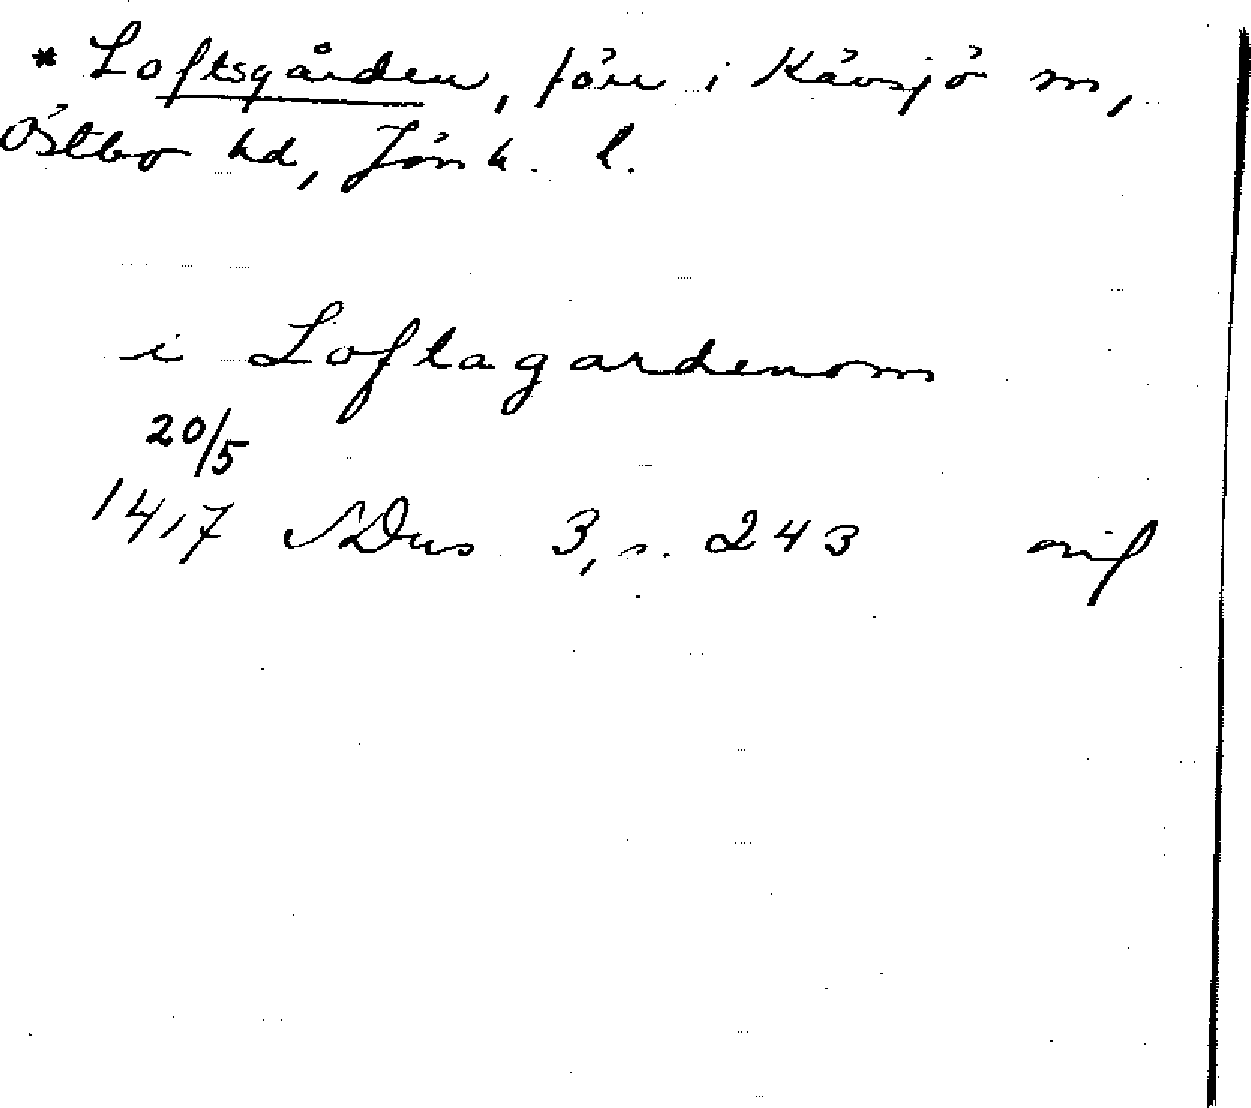 * Loftsgården, förr i Kävsjö sn,
Östbo hd, Jönk. l.
i Loftagardenom
20/5
1417 SDns 3, s. 243